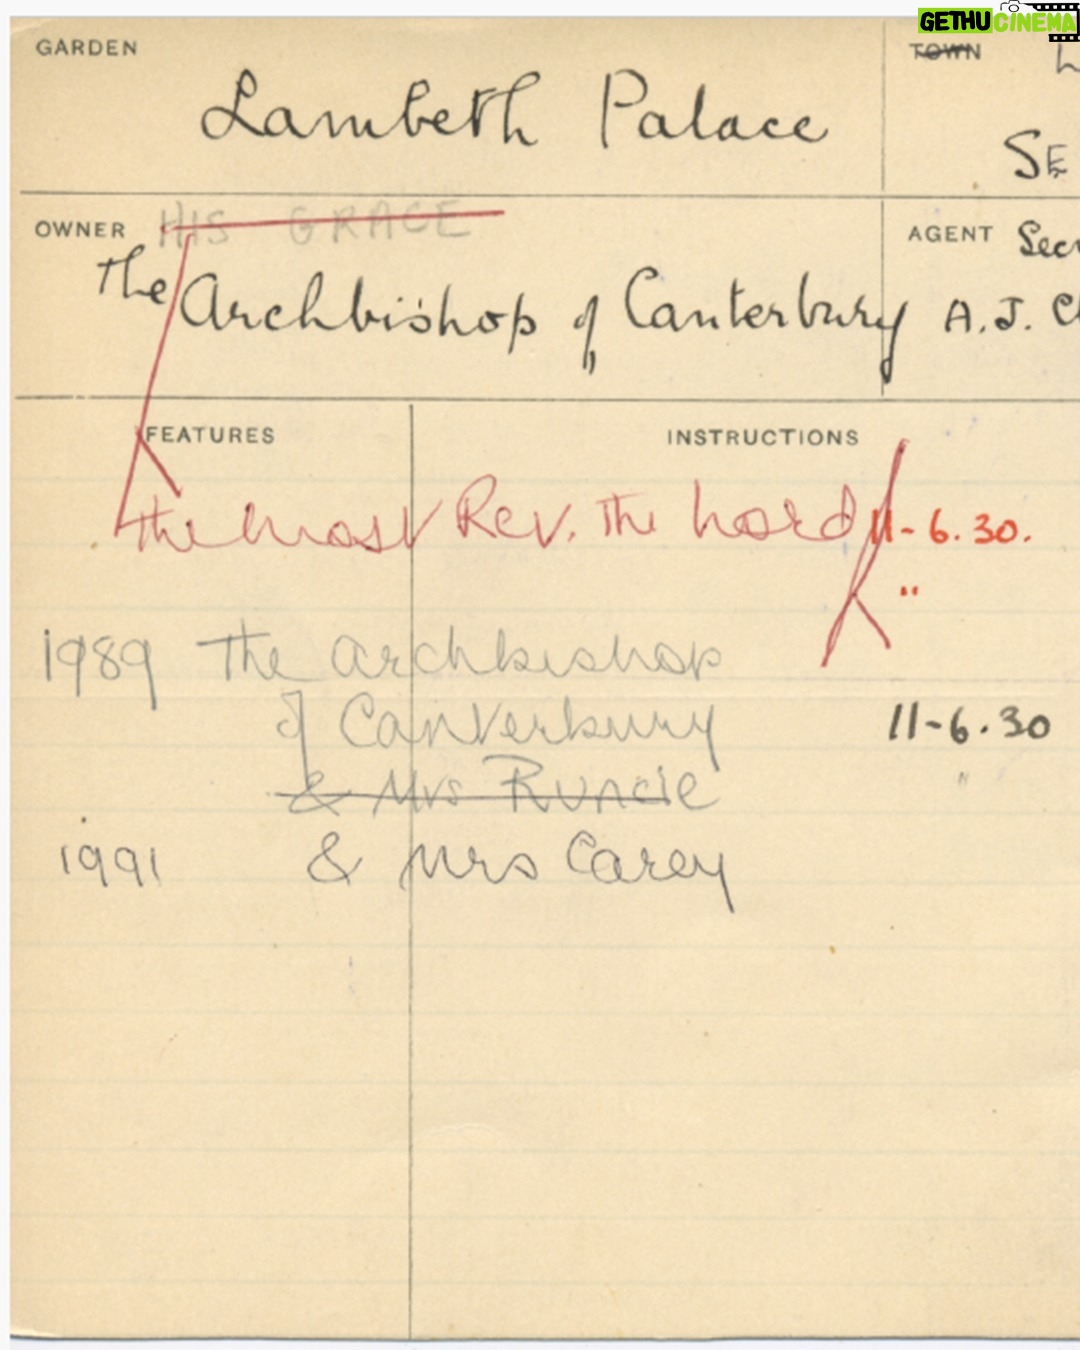 GETHUCINEMA
GARDEN
TOWN
Lambeth Palace
SE
OWNER HIS GRACE
AGENT
The Archbishop of Canterbury A.J.
FEATURES
INSTRUCTIONS
The Most Rev. The Lord 11-6.30.
"
1989 The Archbishop
of Canterbury 11-6.30
"
& Mrs Runcie
1991 & Mrs Carey